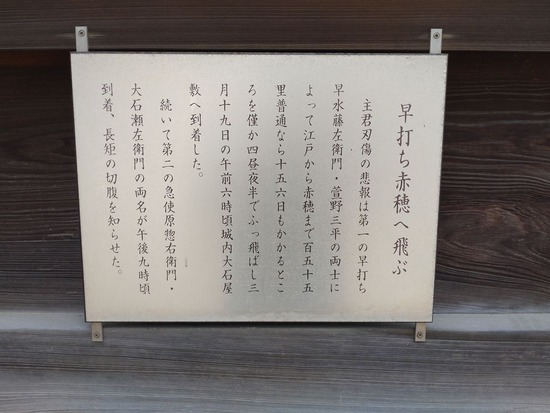 早打ち赤穂へ飛ぶ
主君刃傷の悲報は第一の早打ち
早水藤左衛門・萱野三平の両士に
よって江戸から赤穂まで百五十五
里普通なら十五六日もかかるとこ
ろを僅か四昼夜半でふっ飛ばし三
月十九日の午前六時頃城内大石屋
敷へ到着した。
続いて第二の急使原惣右衛門・
大石瀬左衛門の両名が午後九時頃
到着、長矩の切腹を知らせた。